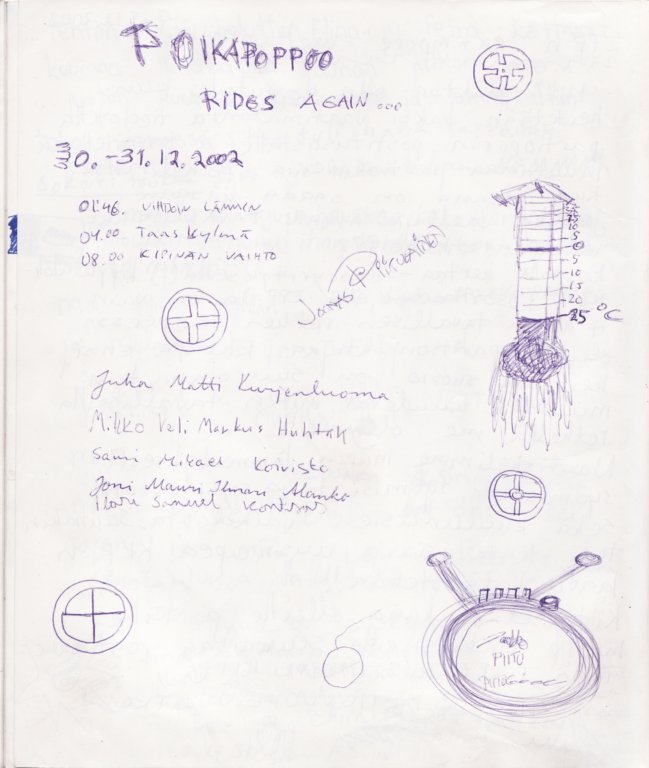 POIKAPOPPOO
RIDES AGAIN...
30.-31.12.2002
01:46. VIHDOIN LÄMMIN
04.00 Taas Kylmä
08.00 KIPINÄN VAIHTO
Juha Matti Kurjenluoma
Mikko Veli Markus Huhtak
Sami Mikael Koivisto
Joni Mauri Ilmari Alanko
Samuel
20
15
10
5
0
5
10
15
20
25 °C
PIITU